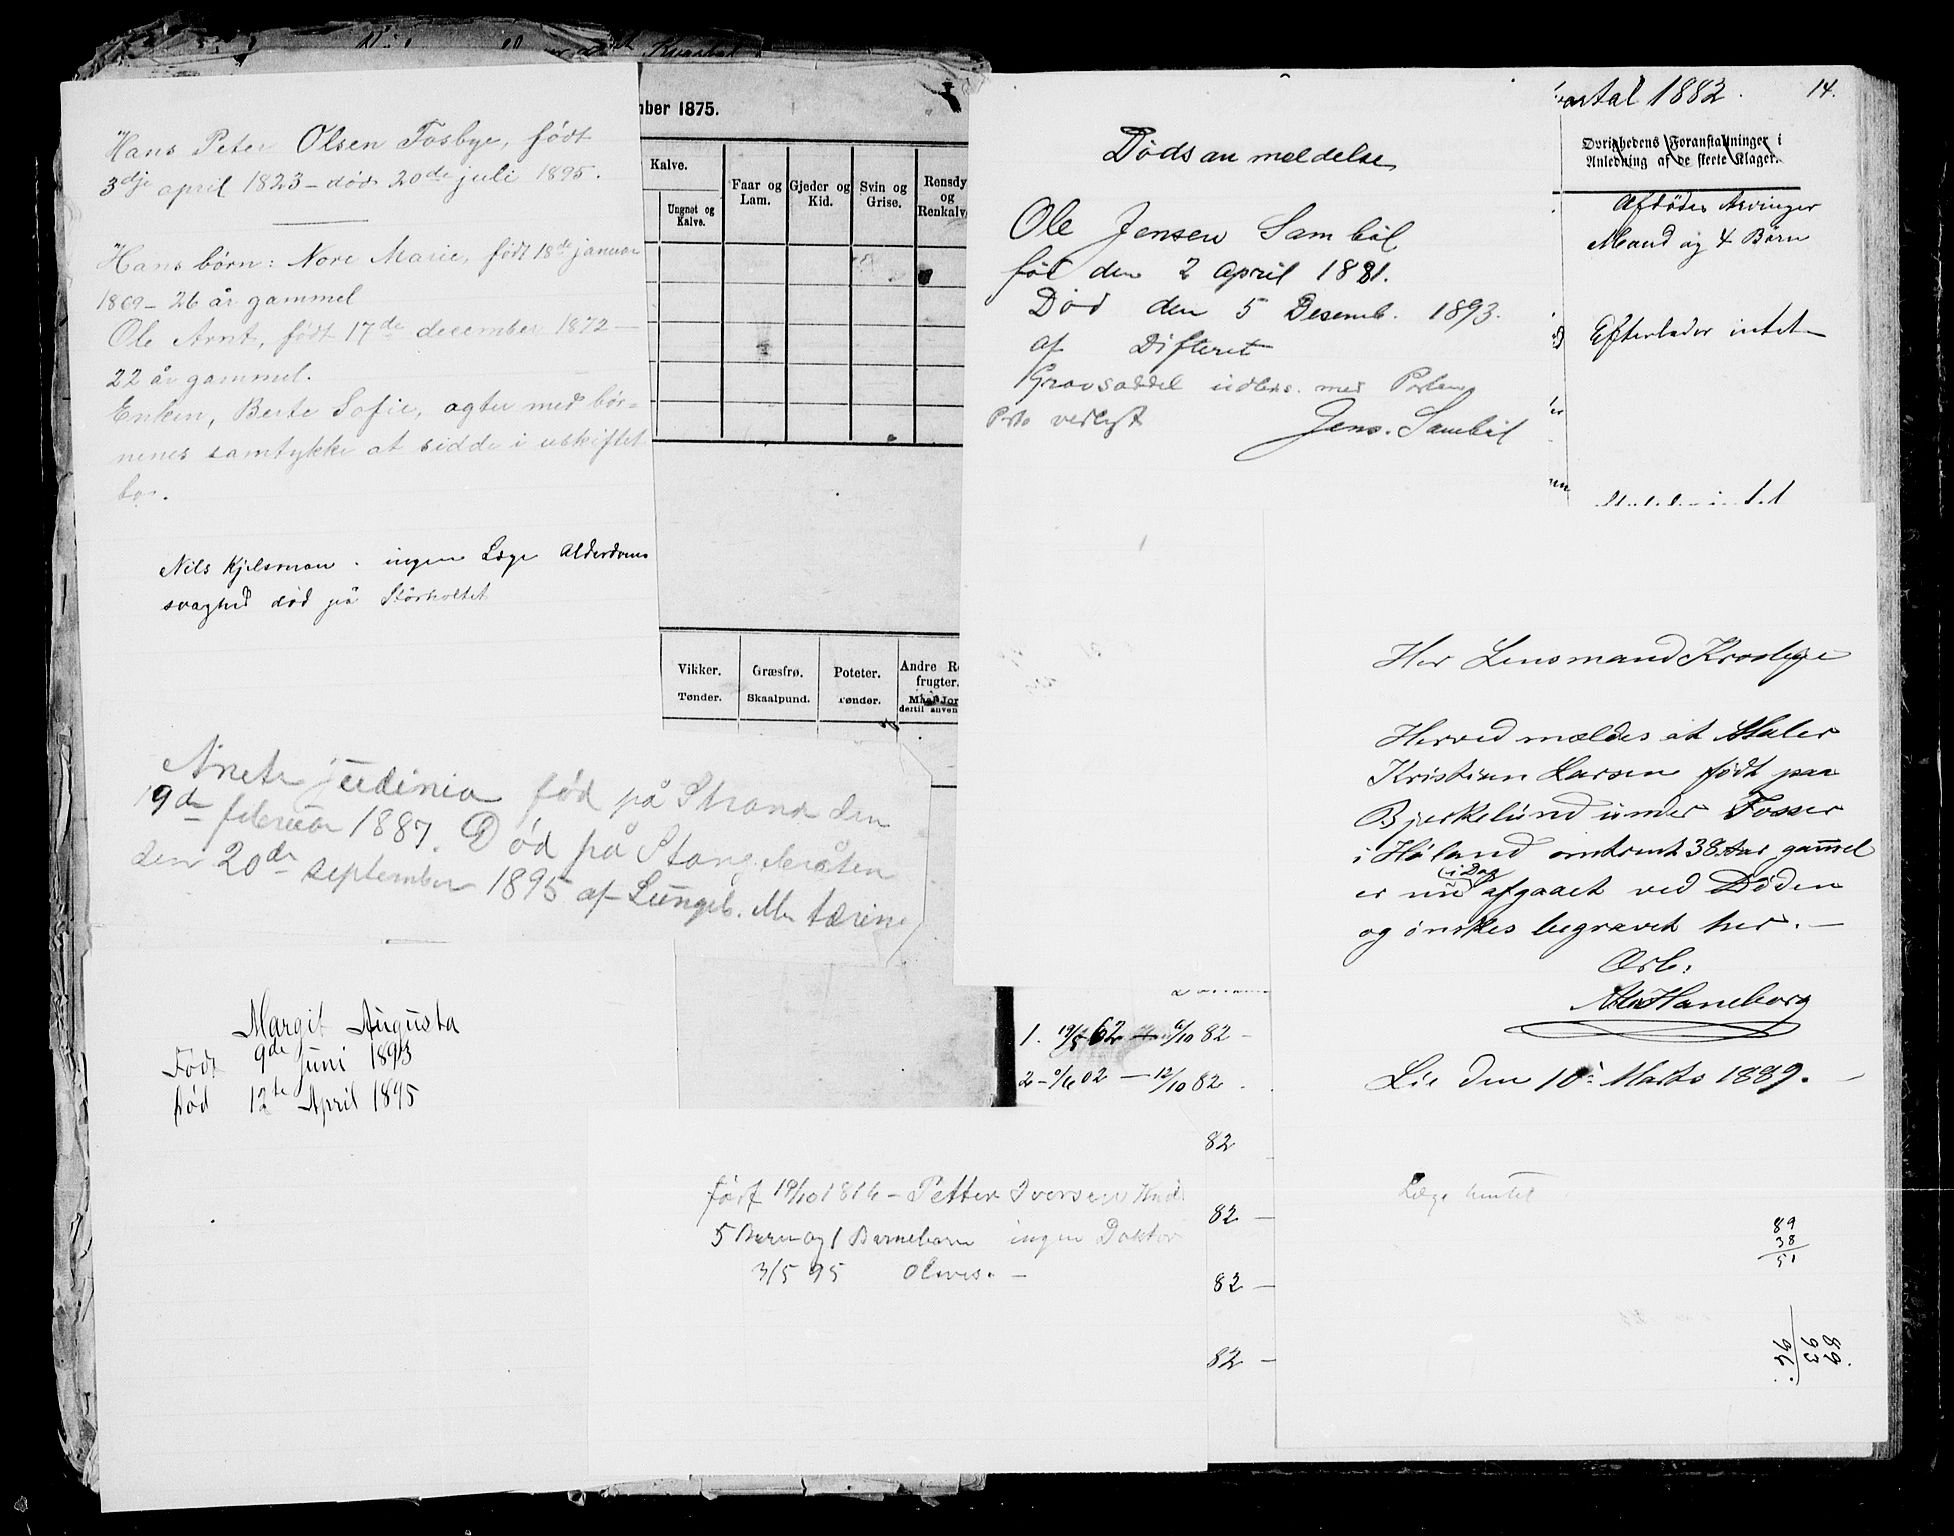 Hans Peter Olsen Fosbye, født
3dje april 1823 – død 20de juli 1895.
Hans børn: Nore Marie, født 18de januar
1869 – 26 år gammel
Ole Arnt, født 17de december 1872 –
22 år gammel.
Enken, Berte Sofie, agter med bør=
nenes samtykke at sidde i uskiftet
bo.
Nils Kjelsmon. ingen Læge Alderdoms
svaghed død på Storholtet
Anete født på Strand den
19de februar 1887. Død på Stang
den 20de september 1895 af
Margit Augusta
Født 9de Juni 1893
død 12te April 1895
ber 1875.
Kalve.
Ungnøt og
Kalve.
Faar og
Lam.
Gjeder og
Kid.
Svin og
Grise.
Rensdy
og
Renkalv
Vikker.
Tønder.
Græsfrø.
Skaalpund.
Poteter.
Tønder.
Andre R
frugter.
dertil anven
født 19/10 1816 – Petter Iversen
5 Børn og 1 Barnebarn ingen Doktor
3/5 95
Dødsanmeldelse
Ole Jensen Sambøl
fød den 2 april 1881.
Død den 5 Desemb. 1893.
af Difterit
Jens. Sambøl
artal 1882.
14.
Øvrighedens Foranstaltninger i
Anledning af de skeete Klager.
Afdødes Arvinger
Mand og 4 Børn
Efterlader intet
1. 19/5 62 – 6/10 82 –
12/10 82
82
82 –
82 –
82 –
Her Lensmand Krosbye
Herved mældes at Maler
Kristian Larsen født paa
Bjerkelund under Fosser
i Høland omtrent 38 Aar gammel
i Dag
er nu afgaaet ved Døden
og ønskes begravet her. –
Ærb.
Haneborg
Lie den 10 Marts 1889.
Læge hentet
89
38
51
89.
93
96.